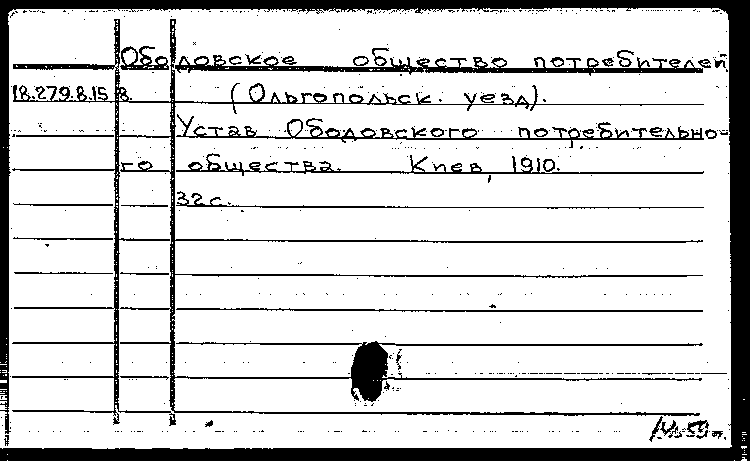 Ободовское общество потребителей
18.279.8.158. (Ольгопольск. уезд).
Устав Ободовского потребительно-
го общества. Киев, 1910.
32 с.